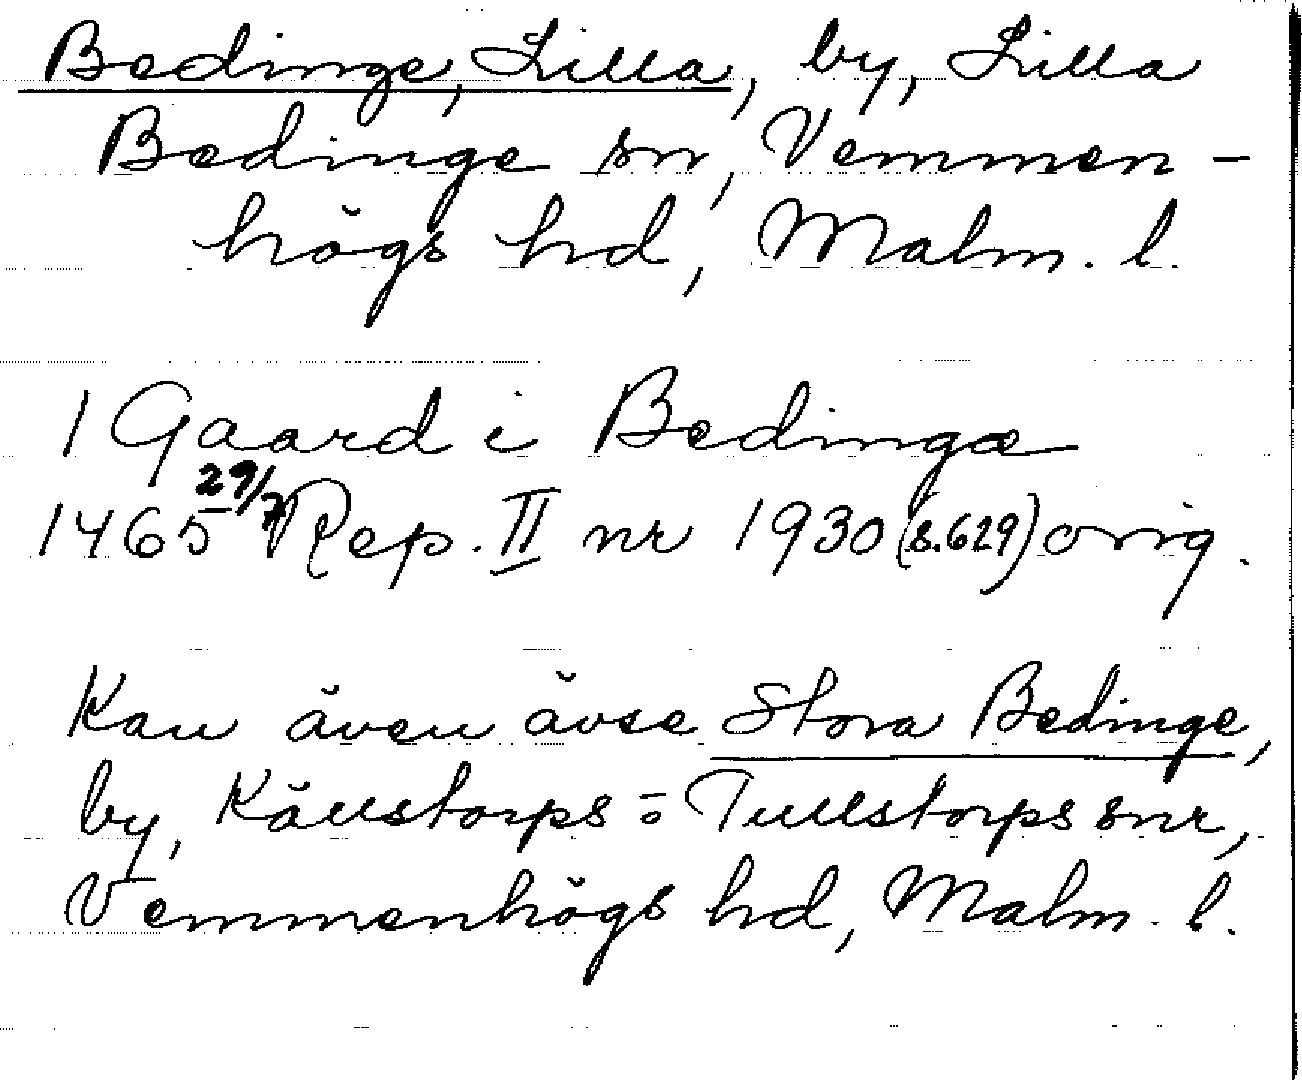 Bedinge, Lilla, by, Lilla
Bedinge sn, Vemmen-
högs hd, Malm. l.
1 Gaard i Bedingæ
1465 29/7 Rep. II nr 1930 (s.629) orig.
Kan även avse Stora Bedinge,
by, Källstorps o Tullstorps snr,
Vemmenhögs hd, Malm. l.